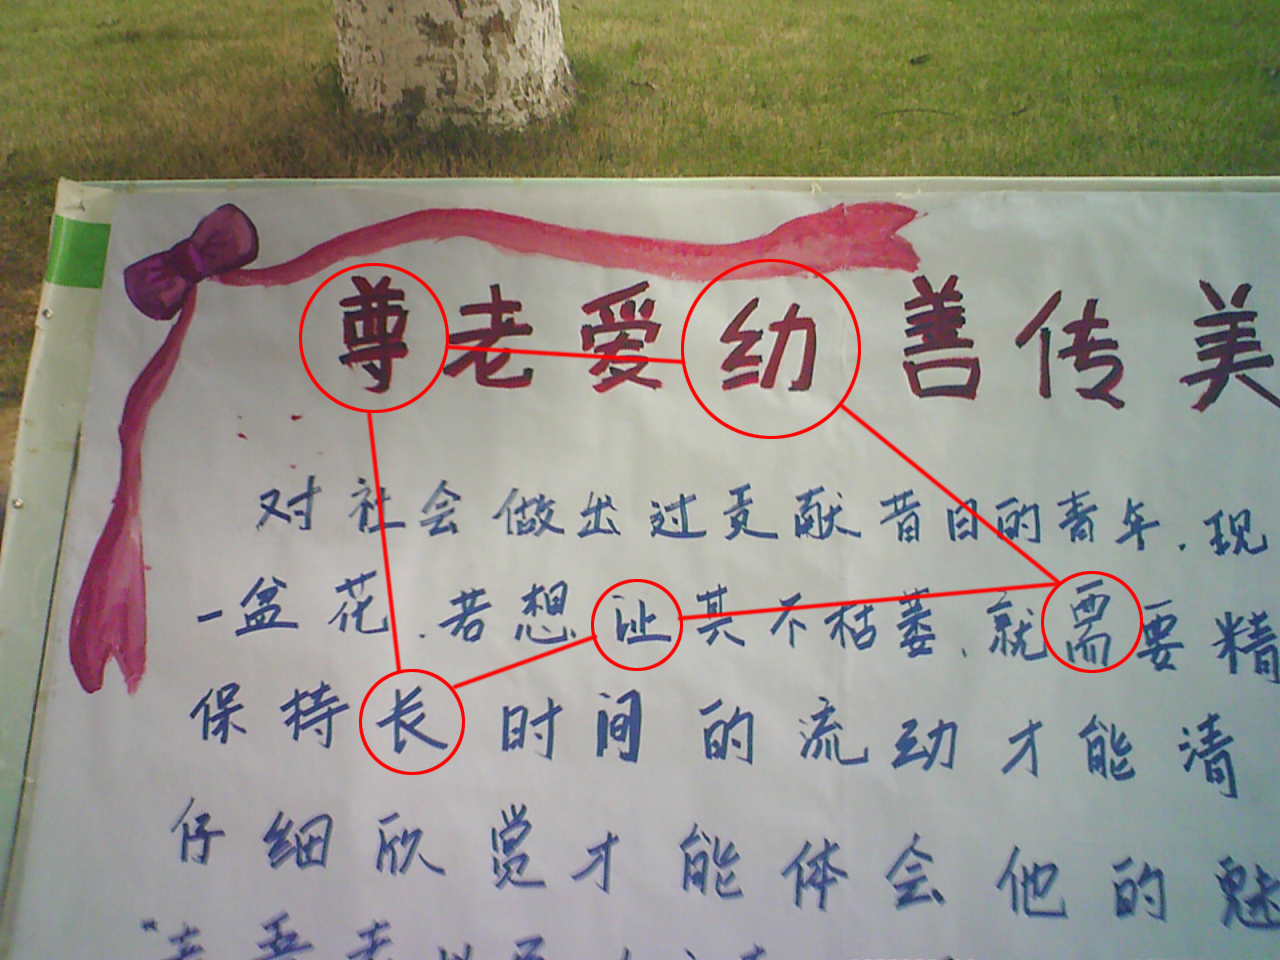 尊老爱幼善传美
对社会做出过贡献昔日的青年.现
一盆花.若想让其不枯萎.就需要精
保持长时间的流动才能清
仔细欣赏才能体会他的魅